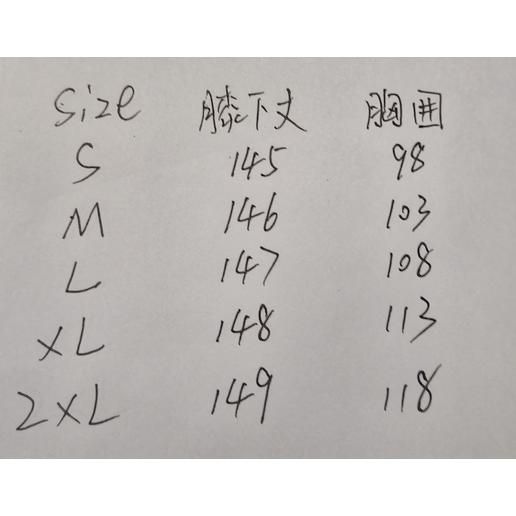 Size 膝下丈 胸囲
S 145 98
M 146 103
L 147 108
XL 148 113
2XL 149 118